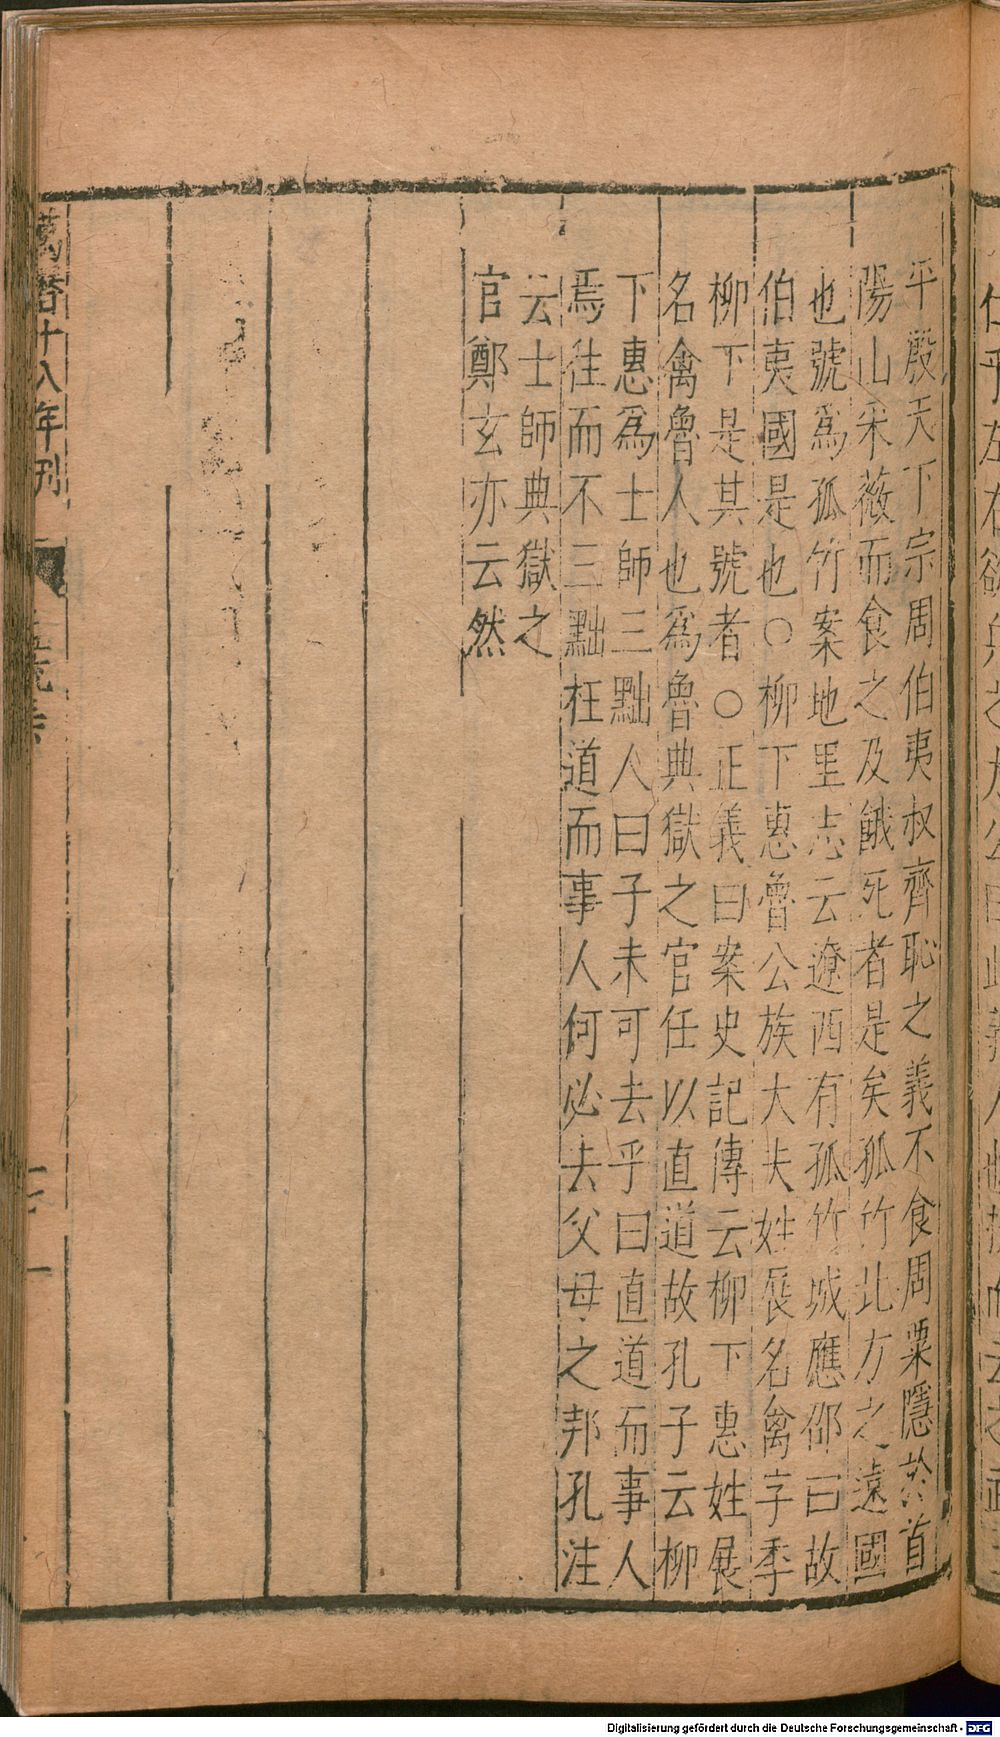 平殷天下宗周伯夷叔齊恥之義不食周粟隱於首
陽山采薇而食之及餓死者是矣孤竹北方之遠國
也號爲孤竹案地里志云遼西有孤竹城應邵曰故
伯夷國是也○柳下惠魯公族大夫姓展名禽字季
柳下是其號者○正義曰案史記傳云柳下惠姓展
名禽魯人也爲魯典獄之官任以直道故孔子云柳
下惠爲士師三黜人曰子未可去乎曰直道而事人
焉往而不三黜枉道而事人何必去父母之邦孔注
云士師典獄之
官鄭玄亦云然
萬曆十八年刊
Digitalisierung gefördert durch die Deutsche Forschungsgemeinschaft - DFG